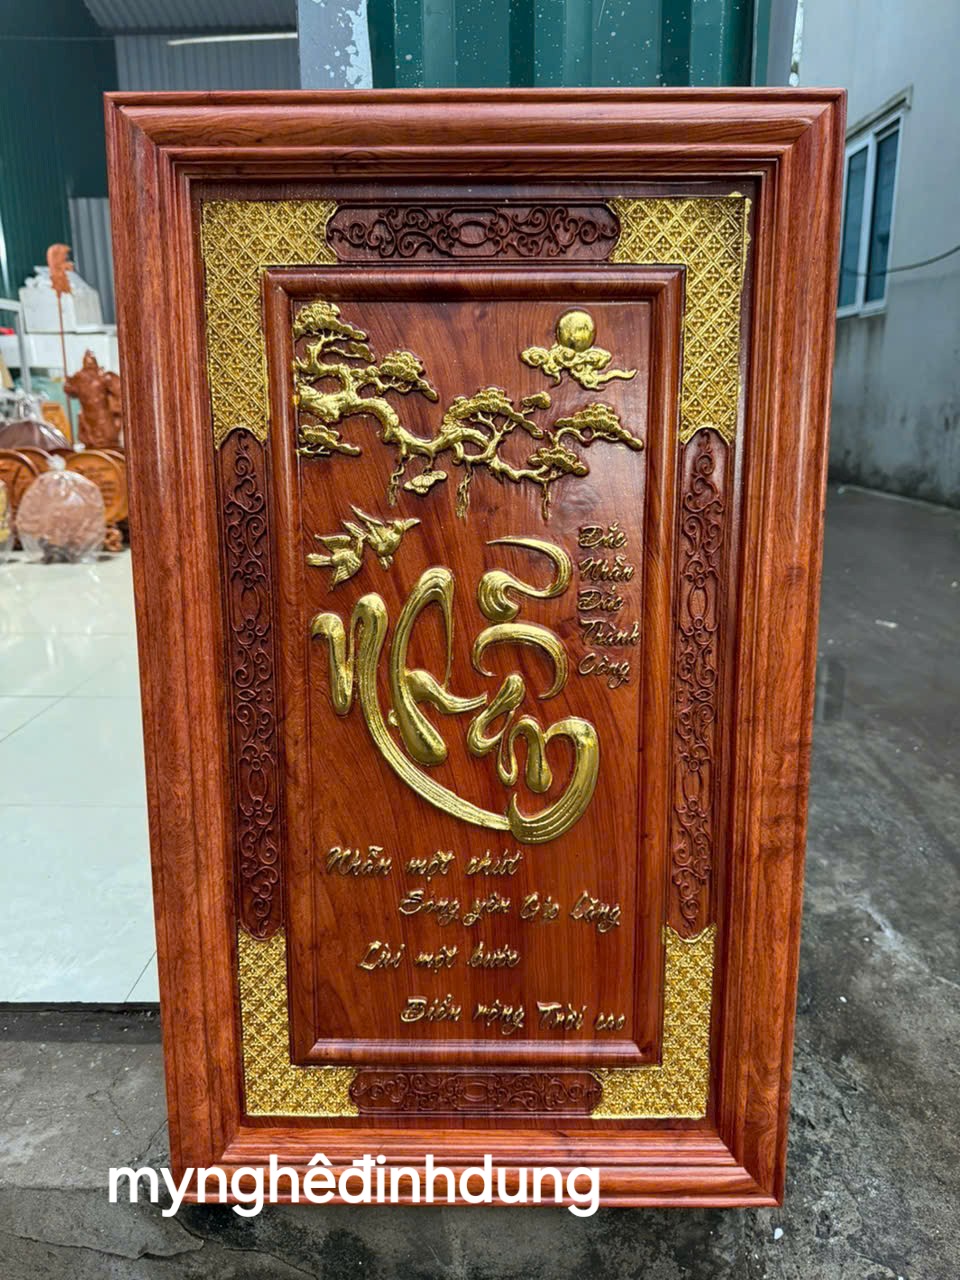 Đắc
Nhẫn
Đắc
Thành
Công
Nhẫn
Nhẫn một chút
Sóng yên Gió lặng
Lùi một bước
Biển rộng Trời cao
mynghêđinhdung